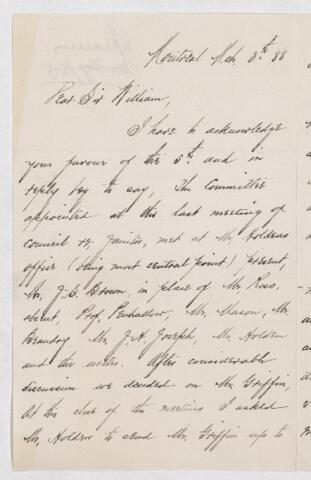 Montreal Mch. 8th 88
Dear Sir William,
I have to acknowledge
your favour of the 5th and in
reply beg to say, The Committee
appointed at the last meeting of
council re Janitor, met at Mr. Holdens
office (being most central point) Present,
Mr. J. S. Brown, in place of Mr. Ross,
absent, Prof. Penhallow, Mr. Mason, Mr.
Beaudry Mr. J. H. Joseph, Mr. Holden
and the writer. After considerable
discussion we decided on Mr. Griffin,
At the close of the meeting I asked
Mr. Holden to send Mr. Griffin up to